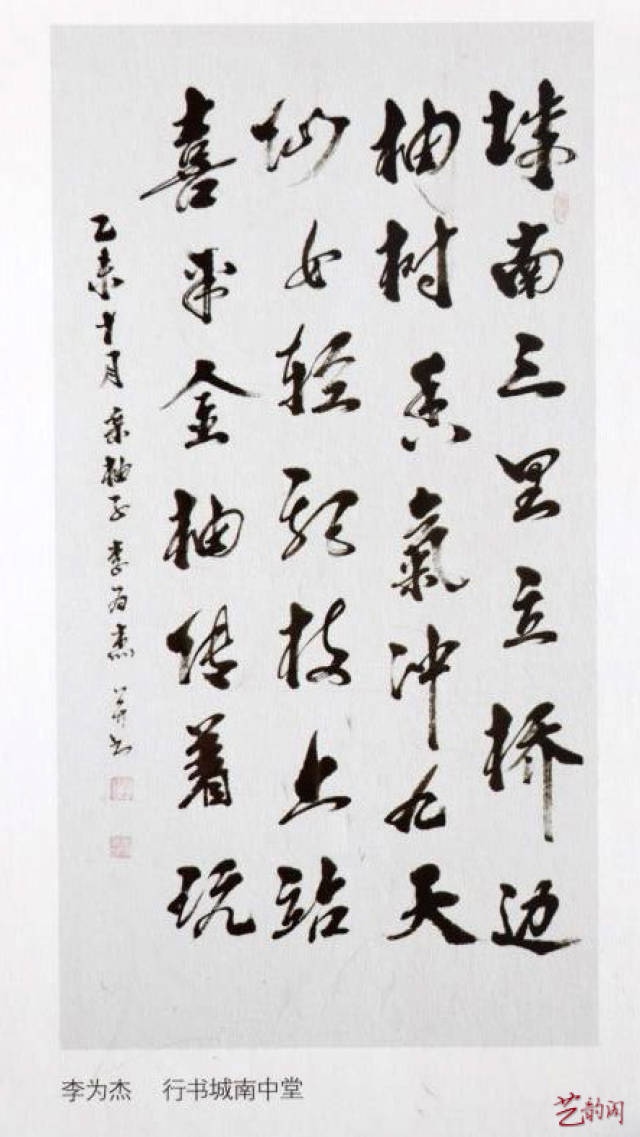 城南三里立桥边
柚树香氣冲九天
仙女轻枝上站
喜采金柚着玩
乙未十月 柚子 李为杰 并书
李为杰 行书城南中堂
艺韵阁